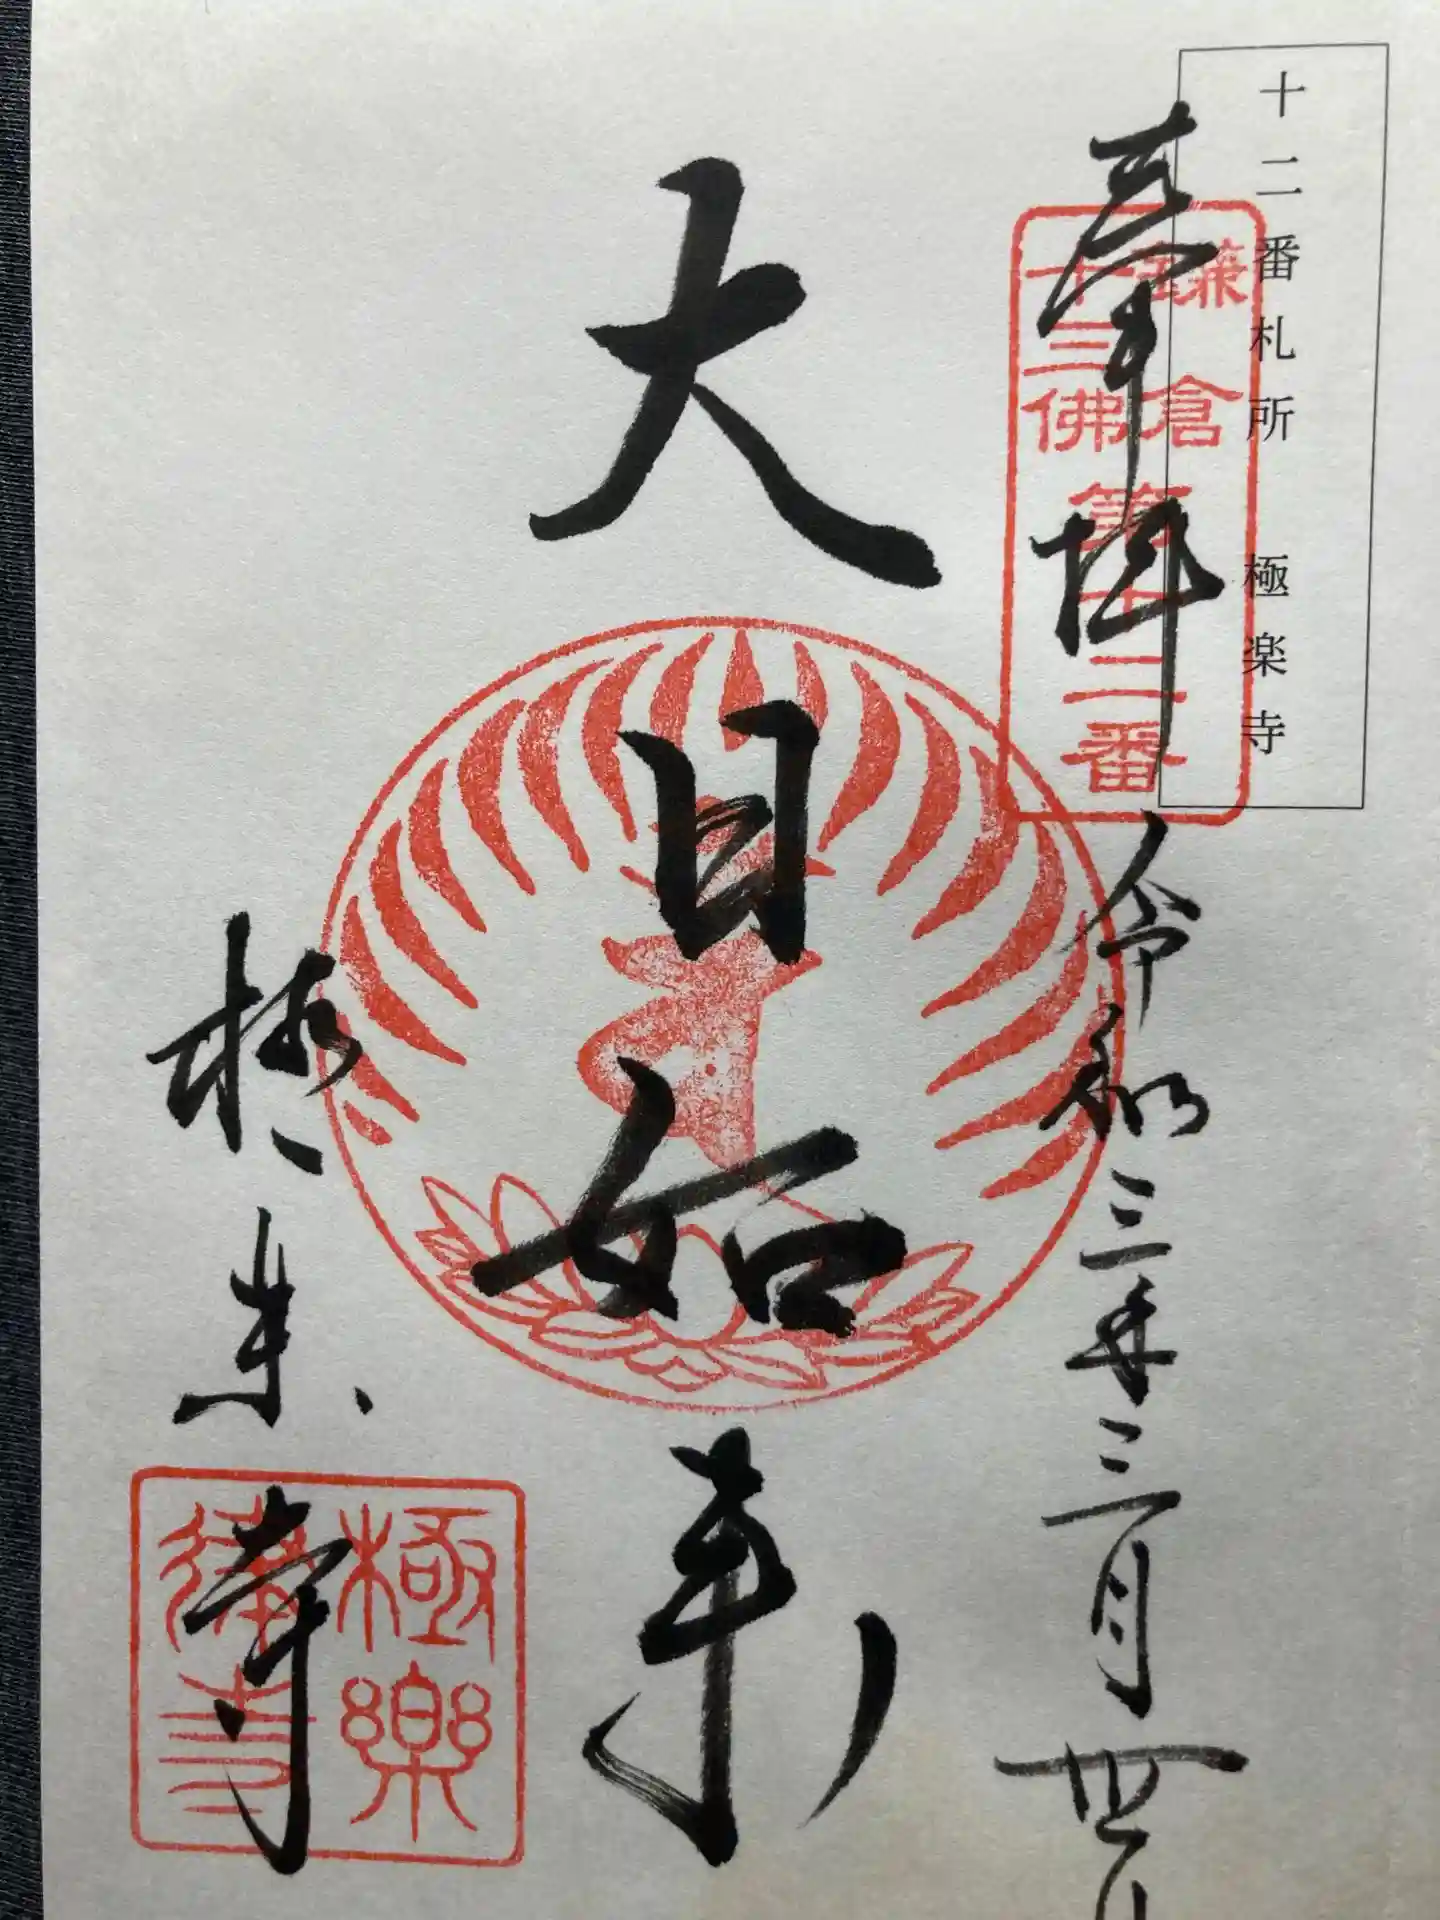 十二番札所 極楽寺
奉拝
鎌倉
十三佛
第十二番
令和三年三月
大日如来
極楽寺
極樂
寺